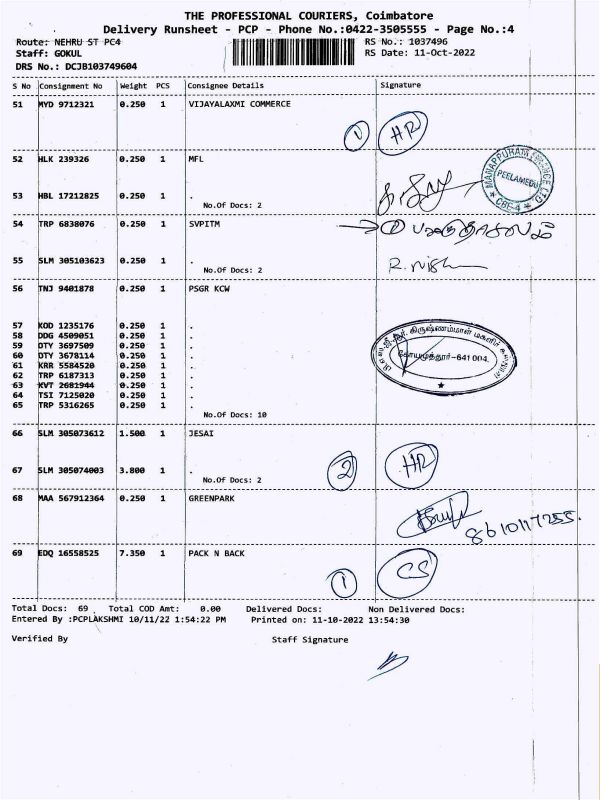 THE PROFESSIONAL COURIERS, Coimbatore
Delivery Runsheet - PCP - Phone No.:0422-3505555 - Page No.:4
Route: NEHRU ST PC4 RS No.: 1037496
Staff: GOKUL RS Date: 11-Oct-2022
DRS No.: DCJB103749604
S No Consignment No Weight PCS Consignee Details Signature
51 MYD 9712321 0.250 1 VIJAYALAXMI COMMERCE
1 HR
52 HLK 239326 0.250 1 MFL
MANAPPURAM FINANCE LTD
PEELAMEDU
CBE-4
53 HBL 17212825 0.250 1 .
No.Of Docs: 2
54 TRP 6838076 0.250 1 SVPITM
55 SLM 305103623 0.250 1 .
No.Of Docs: 2
56 TNJ 9401878 0.250 1 PSGR KCW
57 KOD 1235176 0.250 1 .
58 DDG 4509051 0.250 1 .
59 DTY 3697509 0.250 1 .
60 DTY 3678114 0.250 1 .
61 KRR 5584520 0.250 1 .
62 TRP 6187313 0.250 1 .
63 KVT 2681944 0.250 1 .
64 TSI 7125020 0.250 1 .
65 TRP 5316265 0.250 1 .
கிருஷ்ணம்மாள் மகளிர்
கோயமுத்தூர்-641 004.
No.Of Docs: 10
66 SLM 305073612 1.500 1 JESAI
67 SLM 305074003 3.800 1 .
No.Of Docs: 2
2 HR
68 MAA 567912364 0.250 1 GREENPARK
8610117255.
69 EDQ 16558525 7.350 1 PACK N BACK
1 CS
Total Docs: 69 Total COD Amt: 0.00 Delivered Docs: Non Delivered Docs:
Entered By :PCPLAKSHMI 10/11/22 1:54:22 PM Printed on: 11-10-2022 13:54:30
Verified By Staff Signature